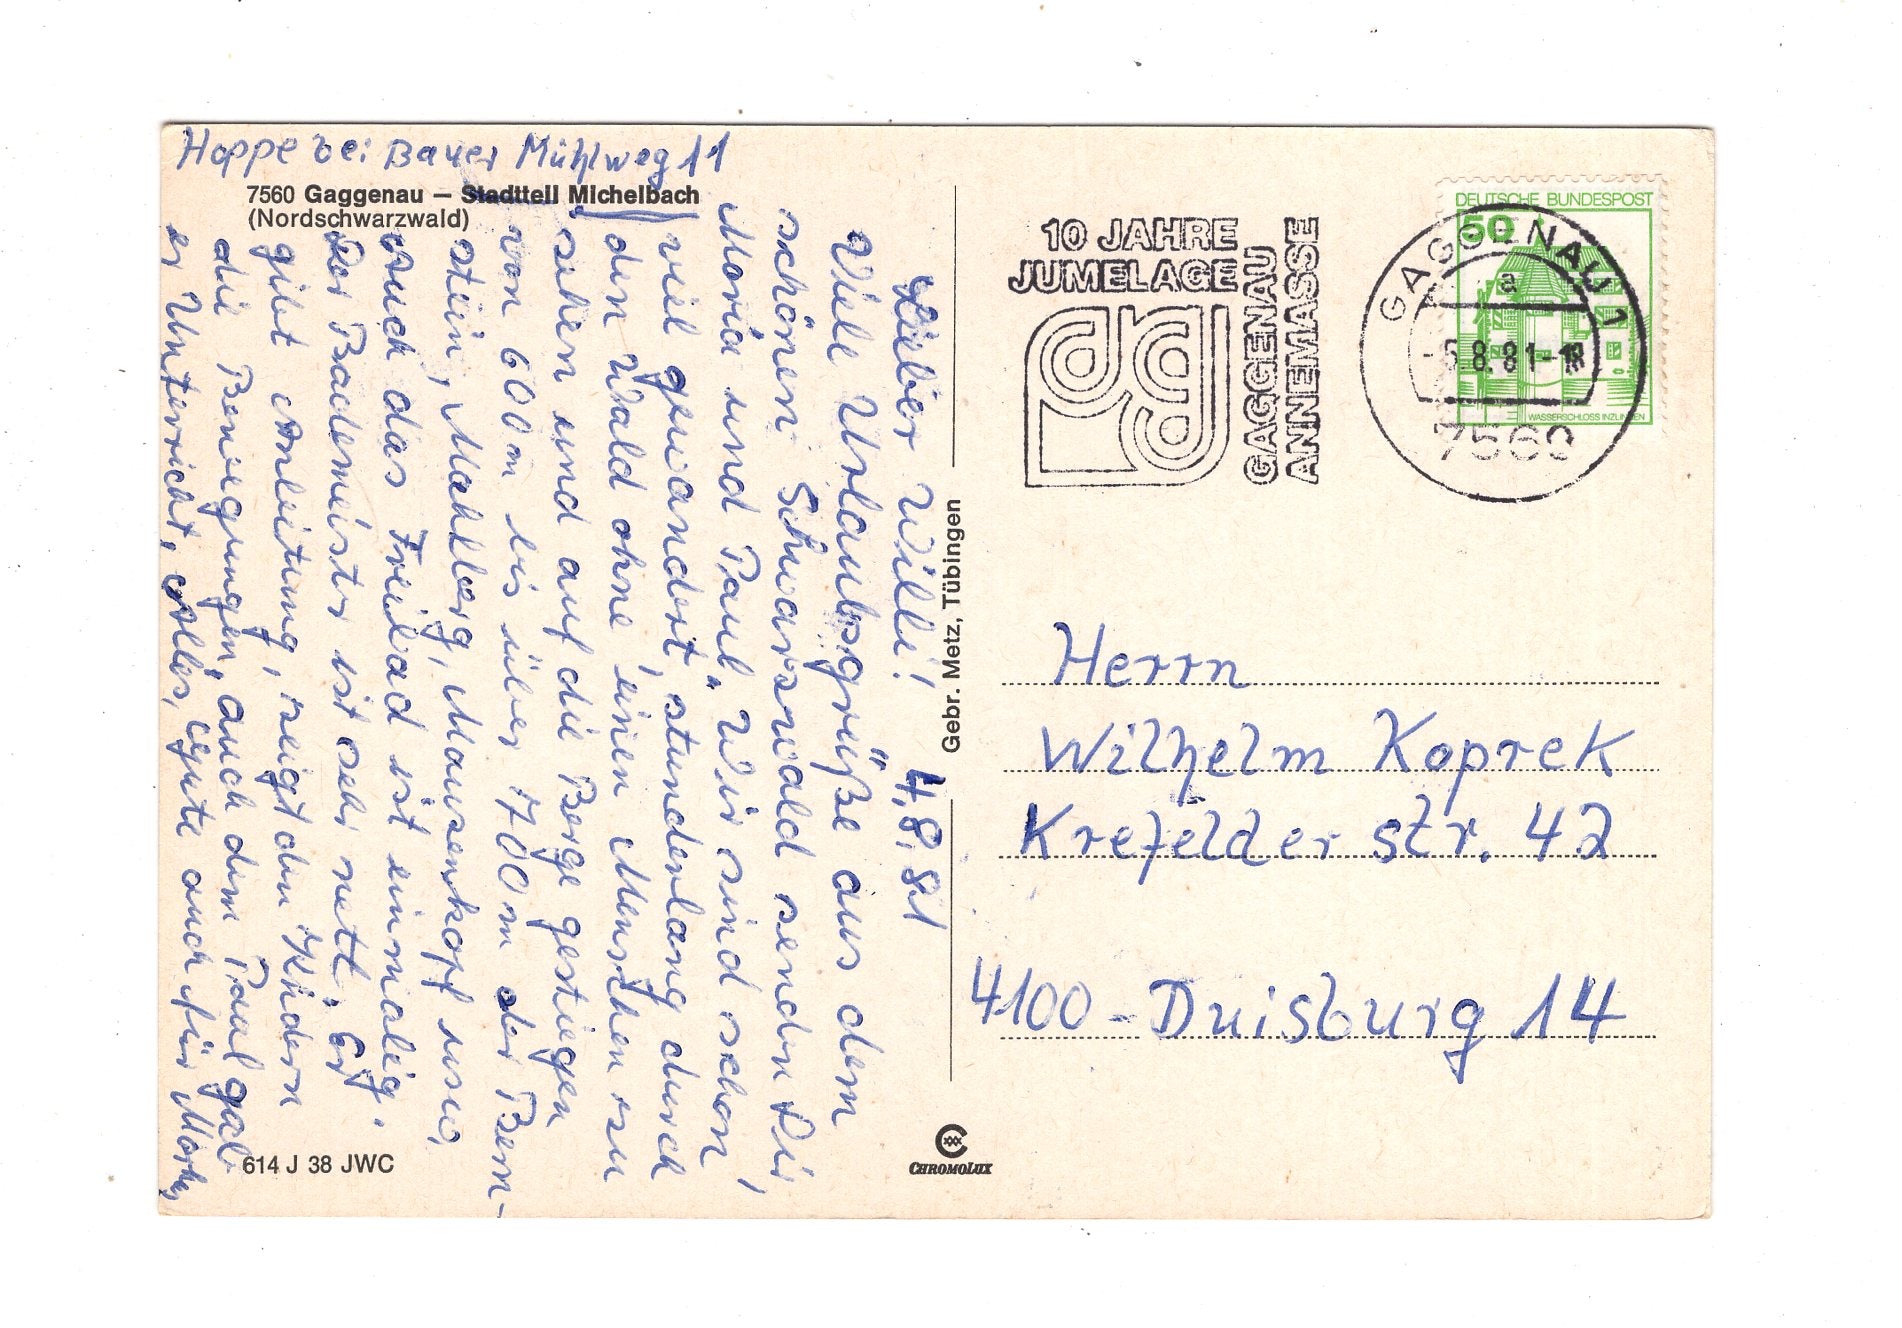 Hoppe bei Bauer Mühlweg 11
7560 Gaggenau – Stadtteil Michelbach
(Nordschwarzwald)
Lieber Willi! 4.8.81
Viele Urlaubsgrüße aus dem
schönen Schwarzwald senden Dir,
Maria und Paul. Wir sind schon
viel gewandert, stundenlang durch
den Wald ohne einen Menschen zu
sehen und auf die Berge gestiegen
von 600m bis über 700m der Bern-
stein, Mahlberg, Mausenkopf usw,
Auch das Freibad ist einmalig.
Der Bademeister ist sehr nett. Er
gibt Anleitung, zeigt den Kindern
die Bewegungen, auch dem Paul gab
er Unterricht, Alles Gute auch für
614 J 38 JWC
Gebr. Metz, Tübingen
CHROMOLUX
10 JAHRE
JUMELAGE
GAGGENAU
ANNEMASSE
DEUTSCHE BUNDESPOST
50
WASSERSCHLOSS INZLINGEN
GAGGENAU 1
a
-5.8.81-18
7560
Herrn
Wilhelm Koprek
Krefelder str. 42
4100 - Duisburg 14